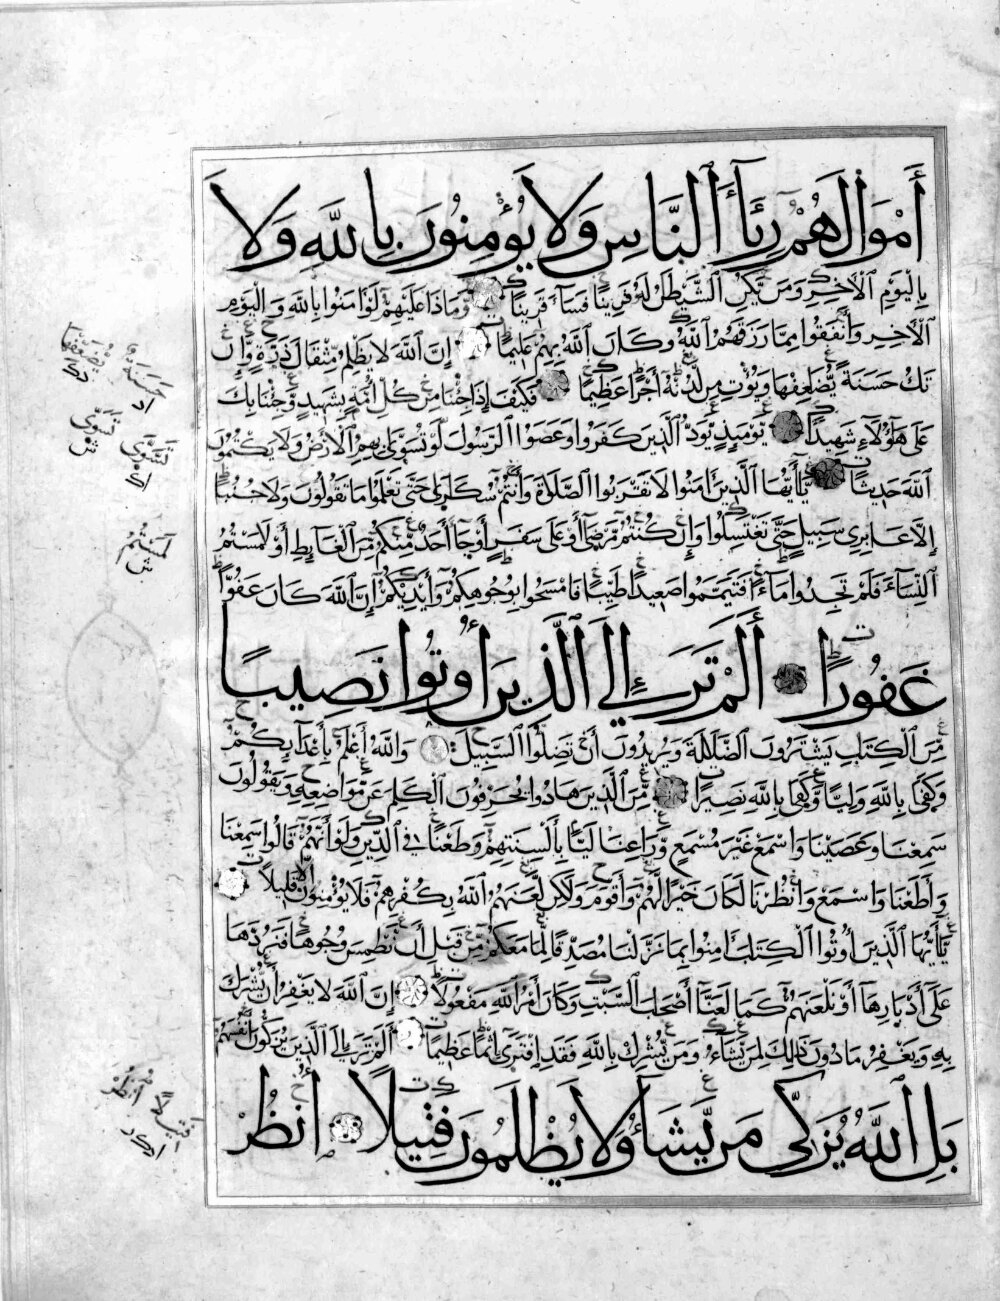 أَمْوَالَهُمْ رِئَآءَ ٱلنَّاسِ وَلَا يُؤْمِنُونَ بِاللَّهِ وَلَا
بِالْيَوْمِ ٱلْأَخِرِ وَمَنْ يَكُنِ ٱلشَّيْطَٰنُ لَهُ قَرِينًا فَسَآءَ قَرِينًا وَمَاذَا عَلَيْهِمْ لَوْ اٰمَنُوا بِاللَّهِ وَالْيَوْمِ
ٱلْأٰخِرِ وَأَنْفَقُوا مِمَّا رَزَقَهُمُ ٱللَّهُ وَكَانَ ٱللَّهُ بِهِمْ عَلِيمًا إِنَّ ٱللَّهَ لَا يَظْلِمُ مِثْقَالَ ذَرَّةٍ وَإِنْ
تَكُ حَسَنَةً يُضَٰعِفْهَا وَيُؤْتِ مِنْ لَدُنْهُ أَجْرًا عَظِيمًا فَكَيْفَ إِذَا جِئْنَا مِنْ كُلِّ أُمَّةٍ بِشَهِيدٍ وَجِئْنَا بِكَ
عَلَىٰ هَٰٓؤُلَآءِ شَهِيدًا يَوْمَئِذٍ يَوَدُّ ٱلَّذِينَ كَفَرُوا وَعَصَوُا ٱلرَّسُولَ لَوْ تُسَوَّىٰ بِهِمُ ٱلْأَرْضُ وَلَا يَكْتُمُونَ
ٱللَّهَ حَدِيثًا يَآ أَيُّهَا ٱلَّذِينَ اٰمَنُوا لَا تَقْرَبُوا ٱلصَّلَوٰةَ وَأَنْتُمْ سُكَارَىٰ حَتَّىٰ تَعْلَمُوا مَا تَقُولُونَ وَلَا جُنُبًا
إِلَّا عَابِرِي سَبِيلٍ حَتَّىٰ تَغْتَسِلُوا وَإِنْ كُنْتُمْ مَرْضَىٰٓ أَوْ عَلَىٰ سَفَرٍ أَوْ جَآءَ أَحَدٌ مِنْكُمْ مِنَ ٱلْغَآئِطِ أَوْ لَٰمَسْتُمُ
ٱلنِّسَآءَ فَلَمْ تَجِدُوا مَآءً فَتَيَمَّمُوا صَعِيدًا طَيِّبًا فَامْسَحُوا بِوُجُوهِكُمْ وَأَيْدِيكُمْ إِنَّ ٱللَّهَ كَانَ عَفُوًّا
غَفُورًا أَلَمْ تَرَ إِلَى ٱلَّذِينَ أُوتُوا نَصِيبًا
مِنَ ٱلْكِتَٰبِ يَشْتَرُونَ ٱلضَّلَٰلَةَ وَيُرِيدُونَ أَنْ تَضِلُّوا ٱلسَّبِيلَ وَاللَّهُ أَعْلَمُ بِأَعْدَآئِكُمْ
وَكَفَىٰ بِاللَّهِ وَلِيًّا وَكَفَىٰ بِاللَّهِ نَصِيرًا مِنَ ٱلَّذِينَ هَادُوا يُحَرِّفُونَ ٱلْكَلِمَ عَنْ مَوَاضِعِهِ وَيَقُولُونَ
سَمِعْنَا وَعَصَيْنَا وَاسْمَعْ غَيْرَ مُسْمَعٍ وَرَاعِنَا لَيًّا بِأَلْسِنَتِهِمْ وَطَعْنًا فِي ٱلدِّينِ وَلَوْ أَنَّهُمْ قَالُوا سَمِعْنَا
وَأَطَعْنَا وَاسْمَعْ وَانْظُرْنَا لَكَانَ خَيْرًا لَهُمْ وَأَقْوَمَ وَلَٰكِنْ لَعَنَهُمُ ٱللَّهُ بِكُفْرِهِمْ فَلَا يُؤْمِنُونَ إِلَّا قَلِيلًا
يَآ أَيُّهَا ٱلَّذِينَ أُوتُوا ٱلْكِتَٰبَ اٰمِنُوا بِمَا نَزَّلْنَا مُصَدِّقًا لِمَا مَعَكُمْ مِنْ قَبْلِ أَنْ نَطْمِسَ وُجُوهًا فَنَرُدَّهَا
عَلَىٰٓ أَدْبَارِهَآ أَوْ نَلْعَنَهُمْ كَمَا لَعَنَّآ أَصْحَابَ ٱلسَّبْتِ وَكَانَ أَمْرُ ٱللَّهِ مَفْعُولًا إِنَّ ٱللَّهَ لَا يَغْفِرُ أَنْ يُشْرَكَ
بِهِ وَيَغْفِرُ مَا دُونَ ذَٰلِكَ لِمَنْ يَشَآءُ وَمَنْ يُشْرِكْ بِاللَّهِ فَقَدِ افْتَرَىٰٓ إِثْمًا عَظِيمًا أَلَمْ تَرَ إِلَى ٱلَّذِينَ يُزَكُّونَ أَنْفُسَهُمْ
بَلِ ٱللَّهُ يُزَكِّي مَنْ يَشَآءُ وَلَا يُظْلَمُونَ فَتِيلًا انْظُرْ
حَسَنَةٌ
تُسَوَّى
تَسَّوَّى
لَمَسْتُمُ
فتيلًا انظر